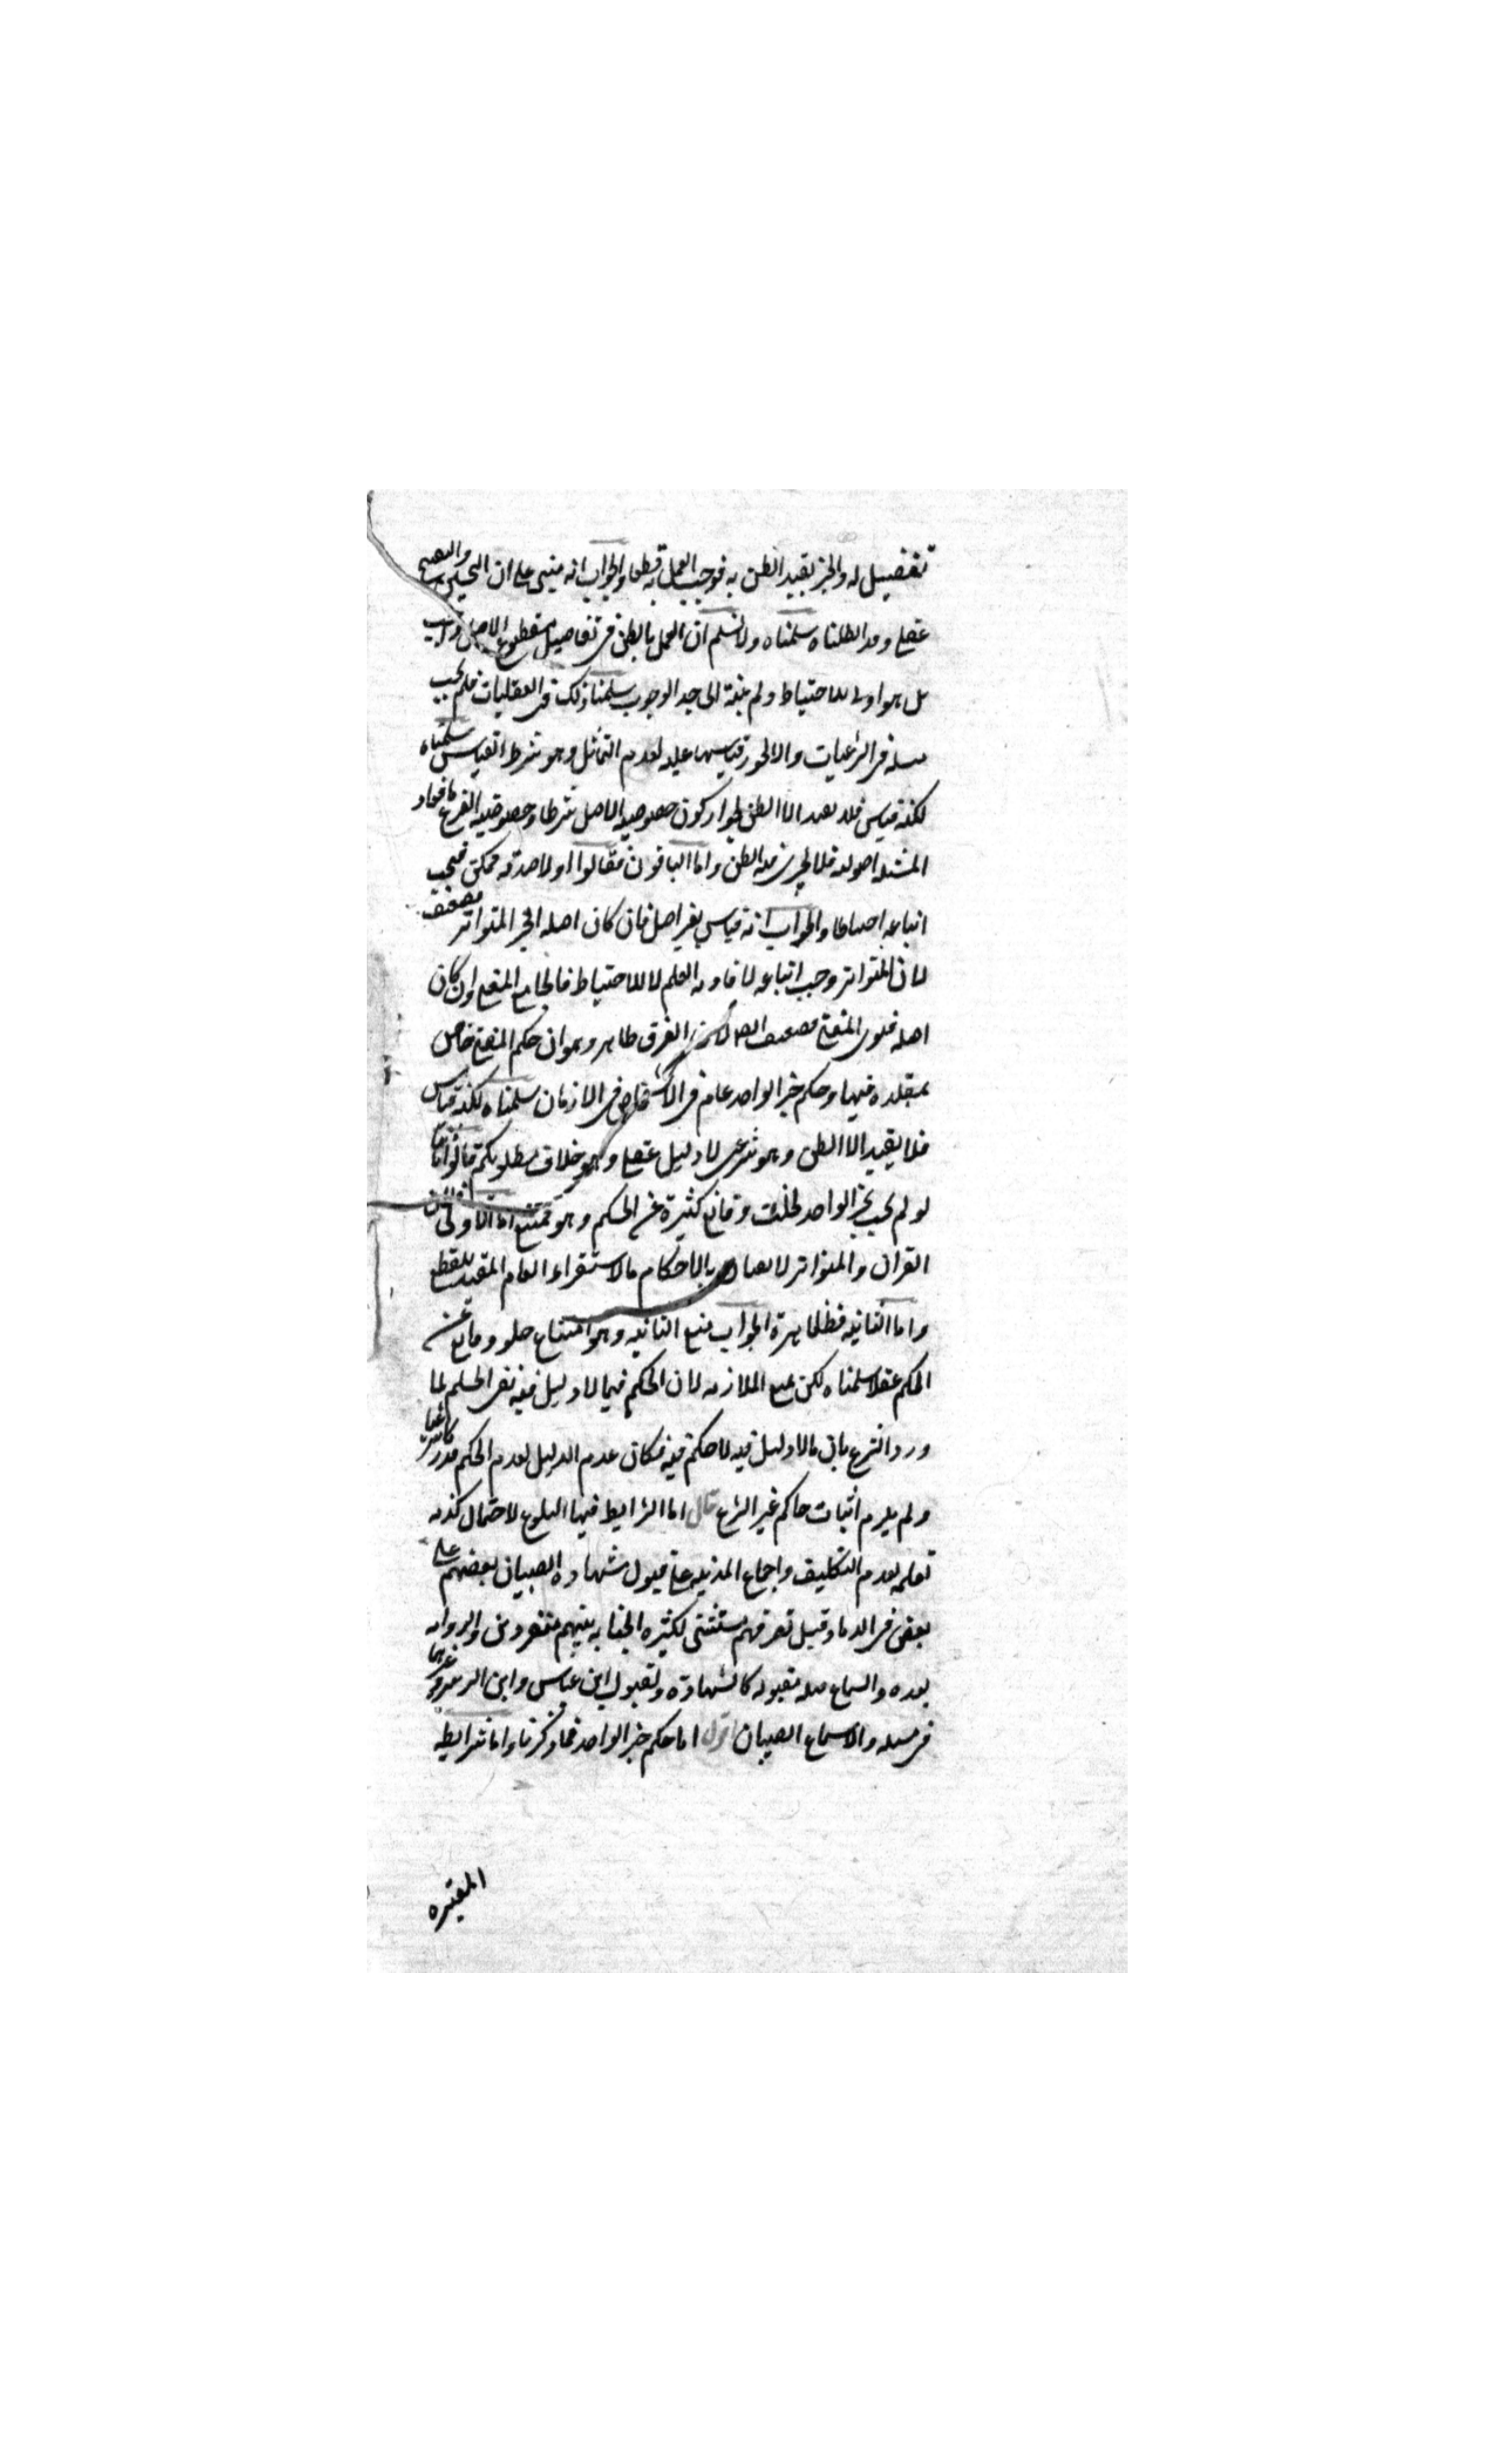 تفضيل له والخبر يفيد الظن به فوجب العمل به قطعا والجواب انه مبني على ان التحسين والتقبيح
عقلي وقد ابطلناه سلمناه ولا نسلم ان العمل بالظن في تفاصيل مقطوع الاصل واجب
بل هو اولى للاحتياط ولم ينته الى حد الوجوب سلمنا ذلك في العقليات فلم يجب
مثله في الشرعيات ولا يجوز قياسها عليه لعدم التماثل وهو شرط القياس سلمناه
لكنه قياس فلا يفيد الا الظن لجواز كون خصوصية الاصل شرطا وخصوصية الفرع مانعا و
المسئله اصوليه فلا يجزى فيه الظن واما الباقون فقالوا اولا صدقه ممكن فيجب
اتباعه احتياطا والجواب انه قياس بغير اصل فان كان اصله الخبر المتواتر فضعيف
لان المتواتر وجب اتباعه لافادته العلم لا للاحتياط فالجامع المنتفى وان كان
اصله فتوى المفتى فضعيف ايضا لان الفرق ظاهر وهو ان حكم المفتى خاص
بمقلده فيها وحكم خبر الواحد عام في الاشخاص في الازمان سلمناه لكنه قياس
فلا يفيد الا الظن وهو شرعى لا دليل عقلى وهو خلاف مطلوبكم قالوا ثانيا
لو لم يجب خبر الواحد لخلت وقائع كثيرة عن الحكم وهو ممتنع اما الاولى فلان
القران والمتواتر لا يفيان بالاحكام بالاستقراء العام المفيد للقطع
واما الثانيه فظاهرة الجواب منع الثانيه وهو امتناع خلو وقايع عن
الحكم عقلا سلمناه لكن نمنع الملازمه لان الحكم فيما لا دليل فيه نفى الحكم لما
ورد الشرع بان ما لا دليل فيه لا حكم فيه فكان عدم الدليل لعدم الحكم مدركا شرعيا
ولم يلزم اثبات حاكم غير الشرع قال اما الشرايط فمنها البلوغ لاحتمال كذبه
لعلمه بعدم التكليف واجماع المدينه على قبول شهادة الصبيان بعضهم على
بعض في الدماء قبل تفرقهم مستثنى لكثرة الجنايه بينهم منفردين والروايه
بعده والسماع قبله مقبوله كالشهادة ولقبول ابن عباس وابن الزبير وغيرهما
في مثله ولاسماع الصبيان اقول اما حكم خبر الواحد فما ذكرنا واما شرايطه
المعتبره